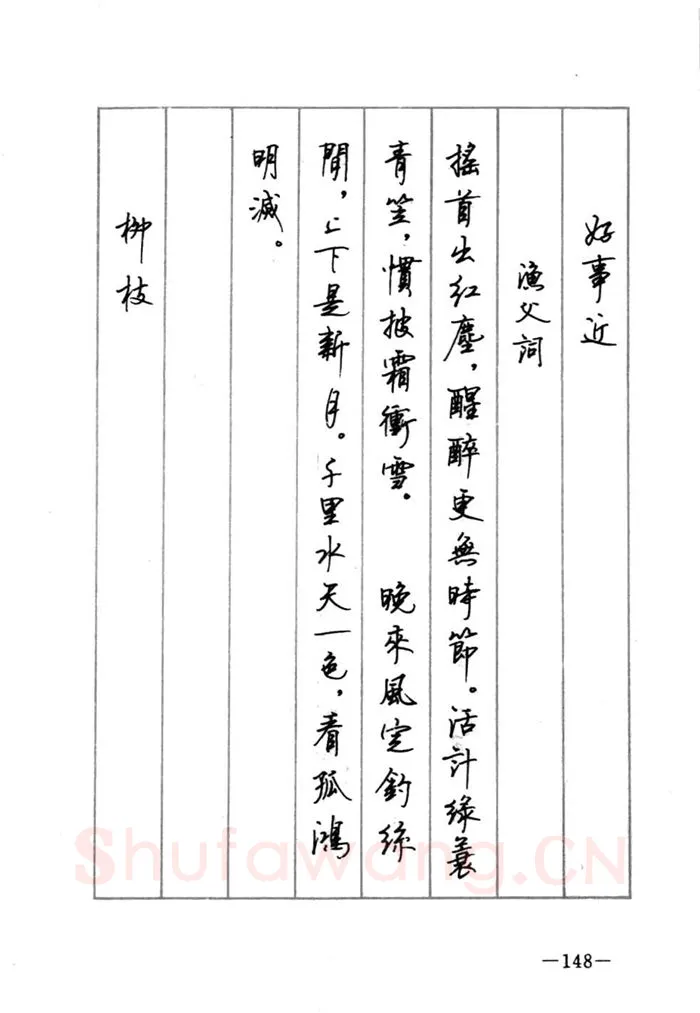 好事近
漁父詞
搖首出紅塵，醒醉更無時節。活計綠蓑
青笠，慣披霜衝雪。　晚來風定釣絲
閒，上下是新月。千里水天一色，看孤鴻
明滅。
柳枝
Shufawang.CN
—148—